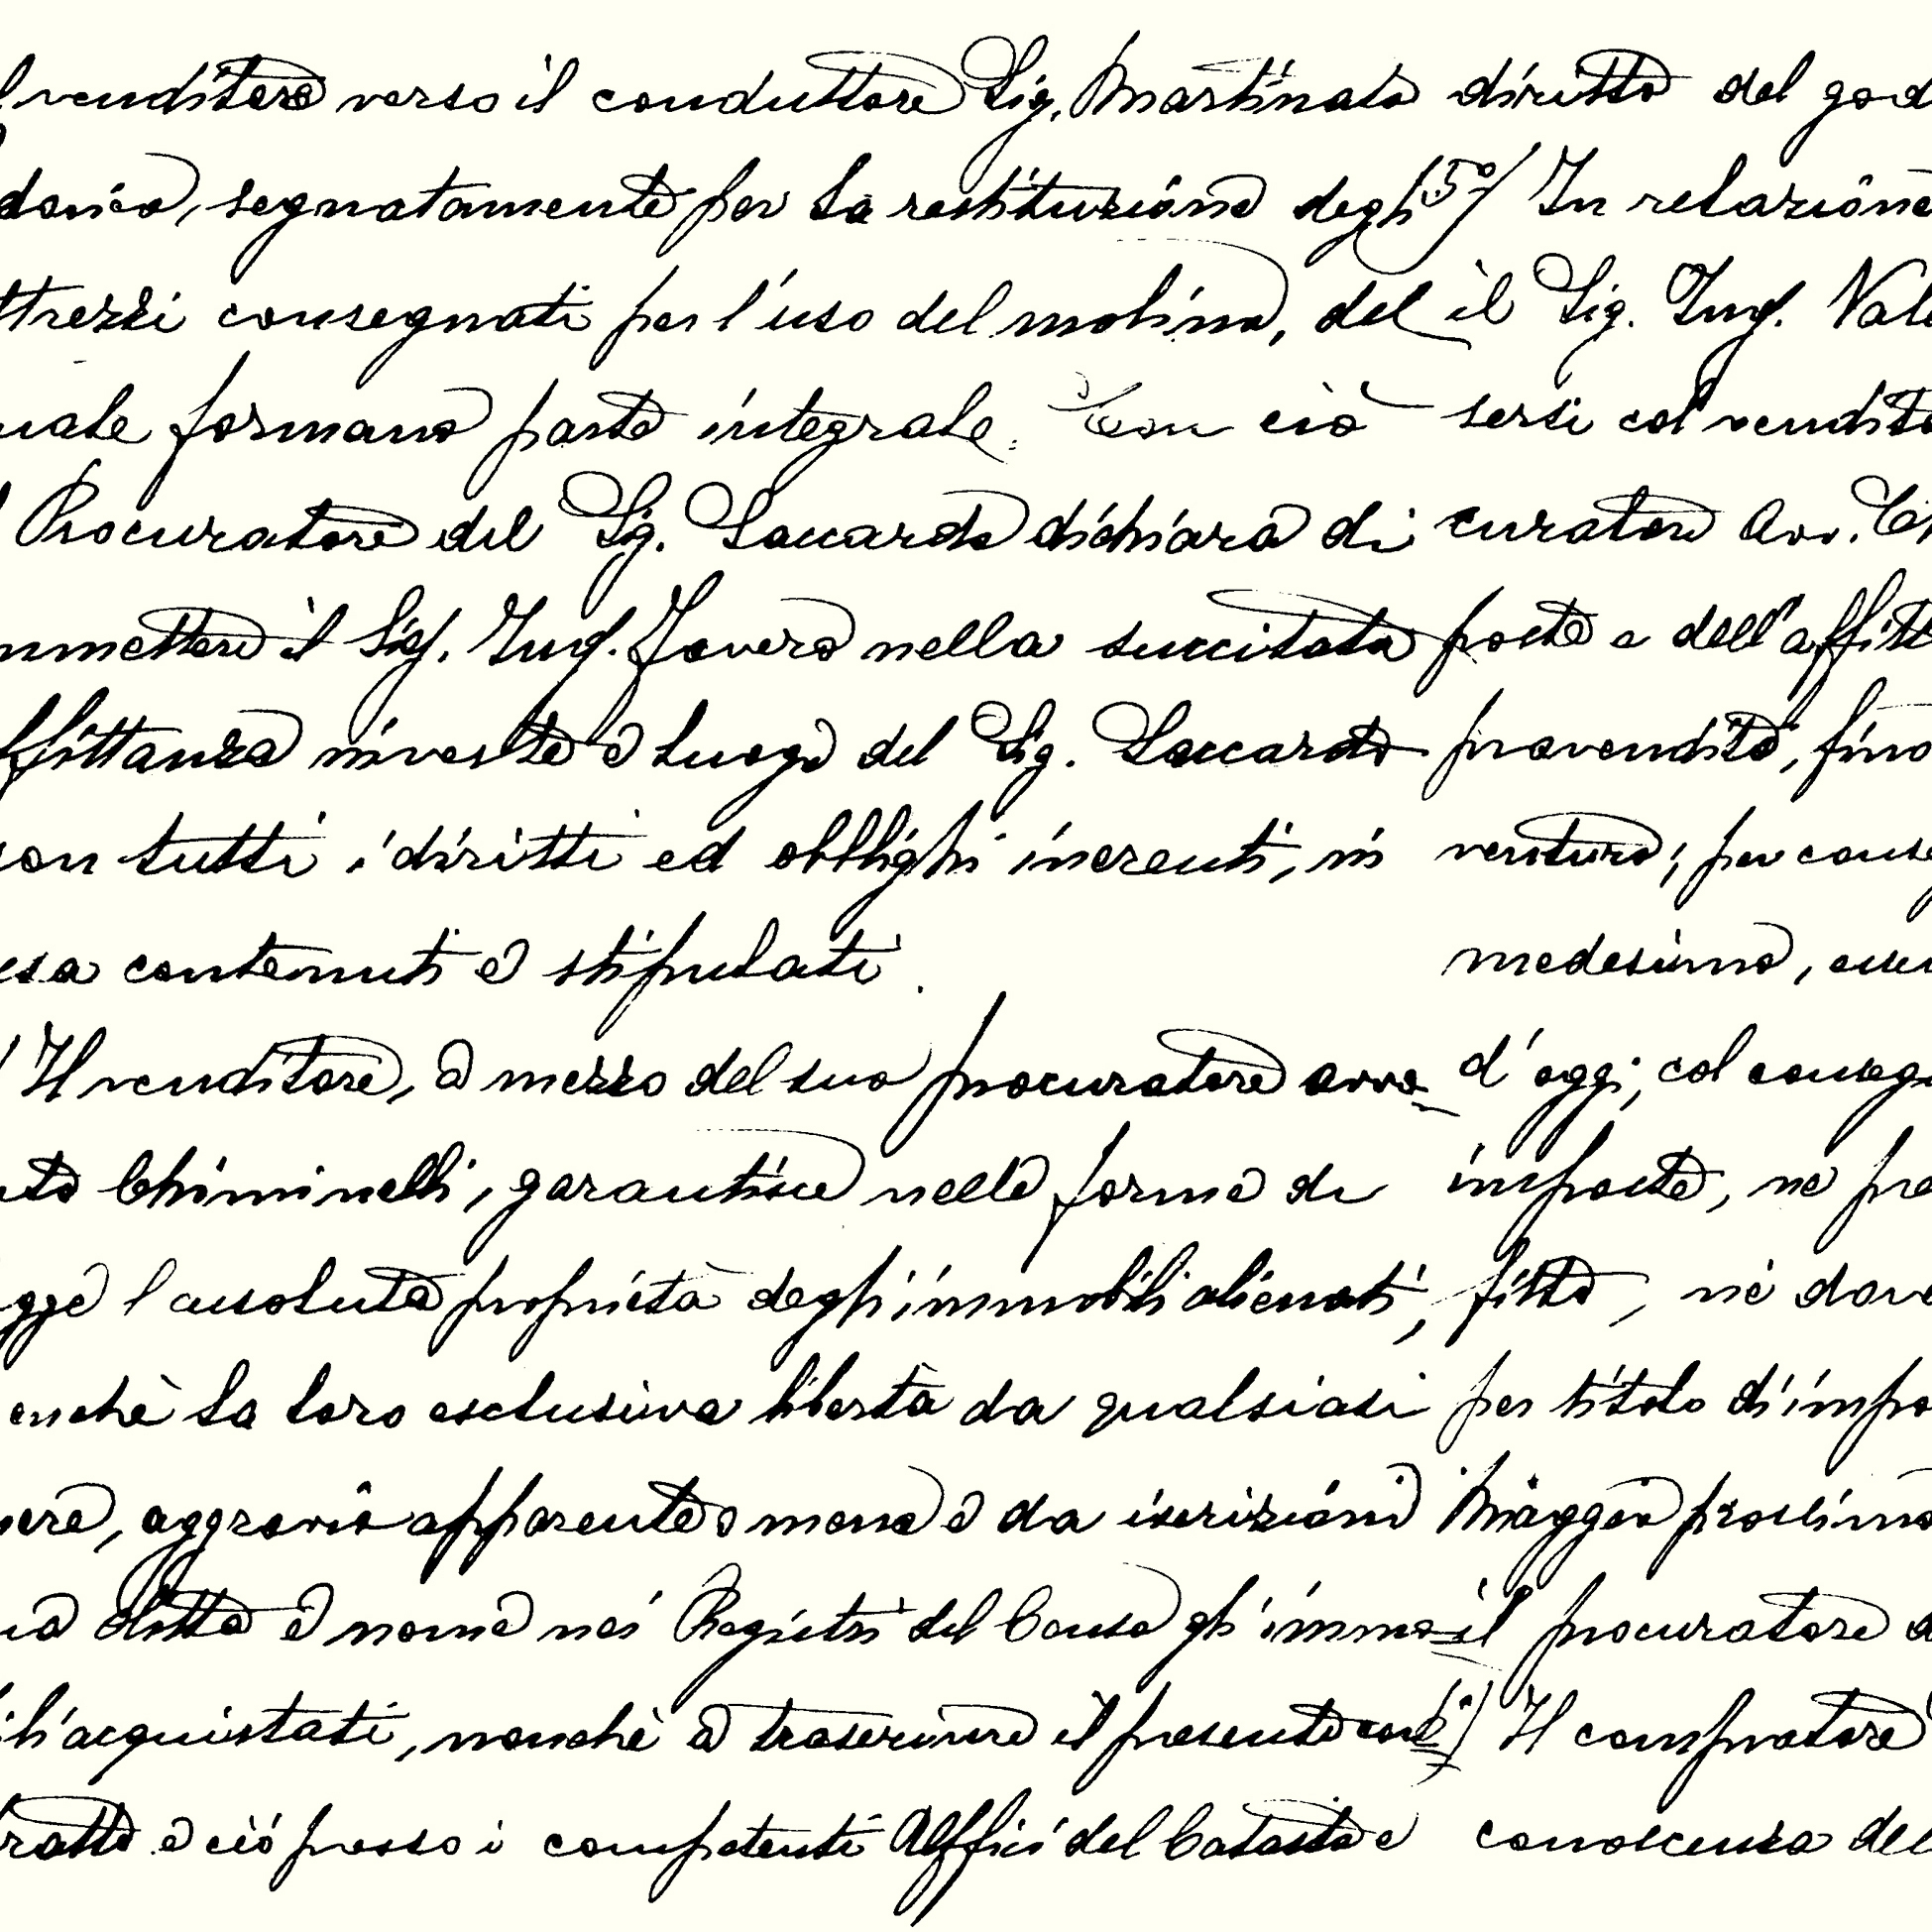 venditore verso il conduttore Sig. Martinato diritto del god
segnatamente per la restituzione degli 5°/ In relazione
consegnati per l'uso del molino, del il Sig. Ing.
formano parte integrale. Con ciò sersi col vendito
Procuratore del Sig. Saccardo dichiara di curatore Avv.
mmettere il Sig. Ing. Favero nella succitata poste e dell'affitt
ffittanza investe a luogo del Sig. Saccardo provendita, fino
on tutti i diritti ed obblighi inerenti, in venturo; per conse
esa contenuti e stipulati. medesimo,
Il venditore, a mezzo del suo procuratore avvo d'oggi; col conseg
Chiminelli, garantisce nelle forme di imposte, ne pre
gge l'assoluta proprietà degli immobili alienati, fitto, nè dov
enchè la loro esclusiva libertà da qualsiasi per titolo di impo
nere, aggravio apparente o meno e da iscrizioni Maggio prossimo
ditta e nome nei Registri del Censo gli immo il procuratore d
ili acquistati, nonchè a trascrivere il presente con Il compratore
ratto e ciò presso i competenti Uffici del Catasto e conoscenza del